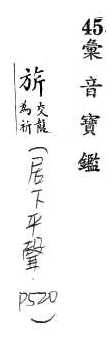 45.彙音寶鑑
旂 交龍為旂
(居下平聲 P520)